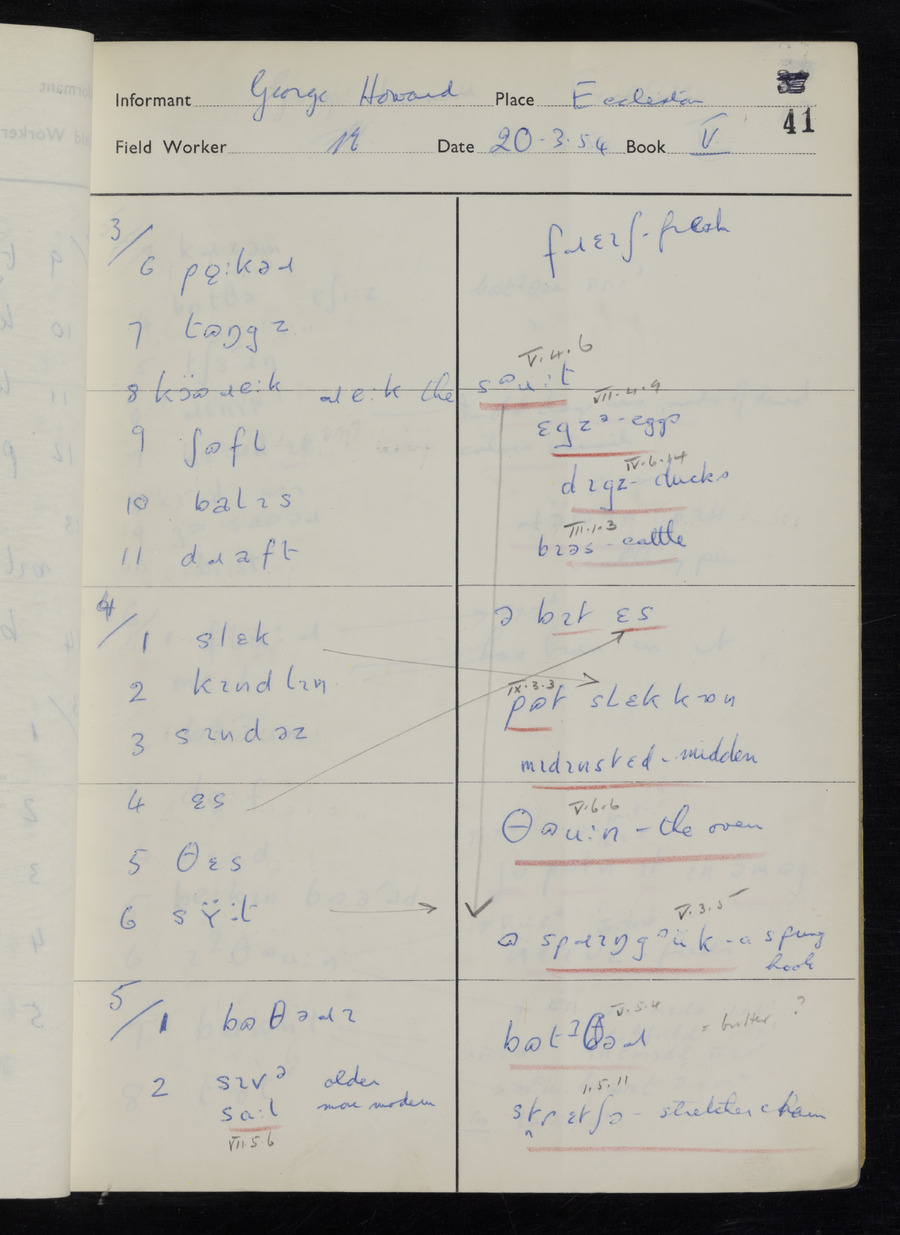 Informant George Howard Place Eccleston
41
Field Worker Date 20.3.54 Book V
3/
6 pɒ̈ːkəɹ
7 tɒŋgz
8 ɹɛːk the sɒuːt V.4.6
9 ʃɒfl
10 balɪs
11 dɹaft
fɹɛɪʃ - fresh
VII.4.9
ɛgzᵊ - eggs
IV.6.14
dɪgz - ducks
III.1.3
bɪəs - cattle
4/
1 slɛk
2 kɪndlɪn
3 sɪndəz
4 ɛs
5 θɛs
6 sŸːt
ə bɪt ɛs
IX.3.3
pɒt slɛk kɒn
mɪdɪnstɛd - midden
V.6.6
θɒuːn - the oven
V.3.5
ɒ spɹɪŋgᵊük - a sprung
hook
5/
1 bɒθəɹɪ
2 sɪvᵊ older
saːl more modern
VII.5.6
V.5.4
= butter ?
1.5.11
stretcher chain